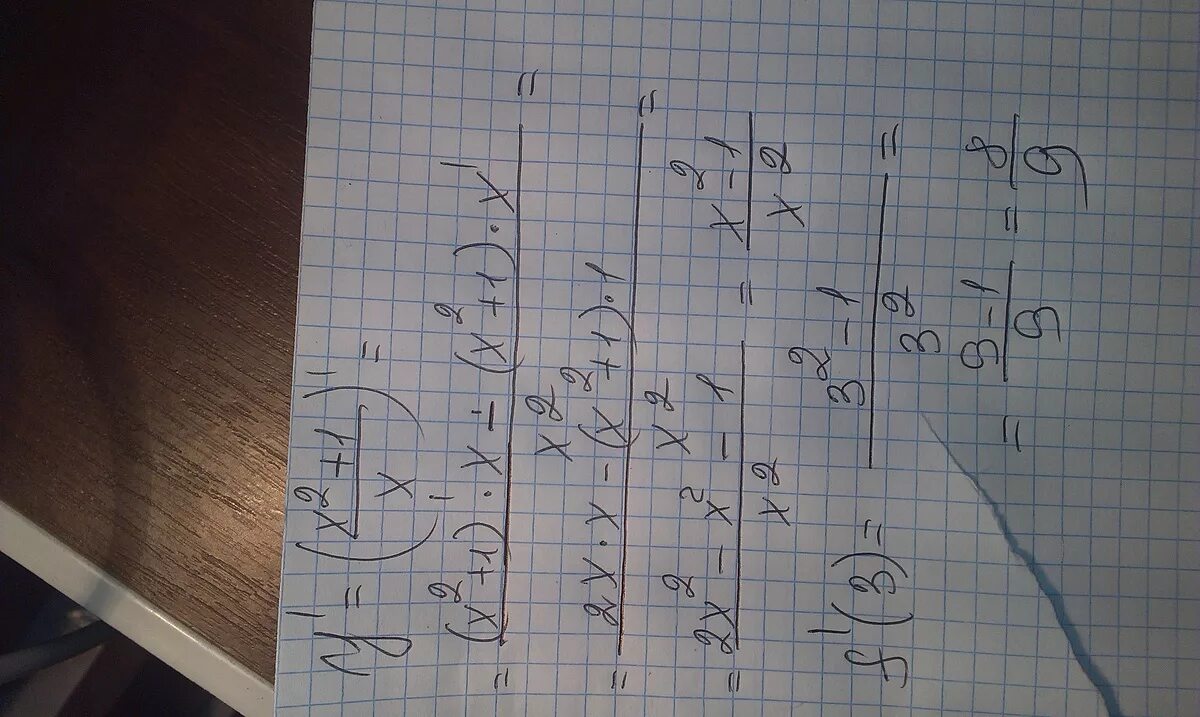 y' = ((x²+1)/x)' =
= ((x²+1)'·x − (x²+1)·x')/x² =
= (2x·x − (x²+1)·1)/x² =
= (2x² − x² − 1)/x² = (x²−1)/x²
f'(3) = (3²−1)/3² =
= (9−1)/9 = 8/9